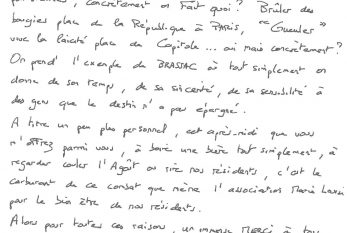 concrètement on Fait quoi ? Brûler des
bougies place de la République à PARIS, "Gueuler"
vive la laïcité place du Capitole ... oui mais concrètement ?
On prend l'exemple de BRASSAC où tout simplement on
donne de son temps, de sa sincérité, de sa sensibilité à
des gens que le destin n'a pas épargné.
A titre un peu plus personnel, cet après-midi que vous
m'offrez parmi vous, à boire une bière tout simplement, à
regarder couler l'Agoût ou rire nos résidents, c'est le
carburant de ce combat que mène l'association Marie Louise
par le bien être de nos résidents.
Alors pour toutes ces raisons, un immense Merci à tous